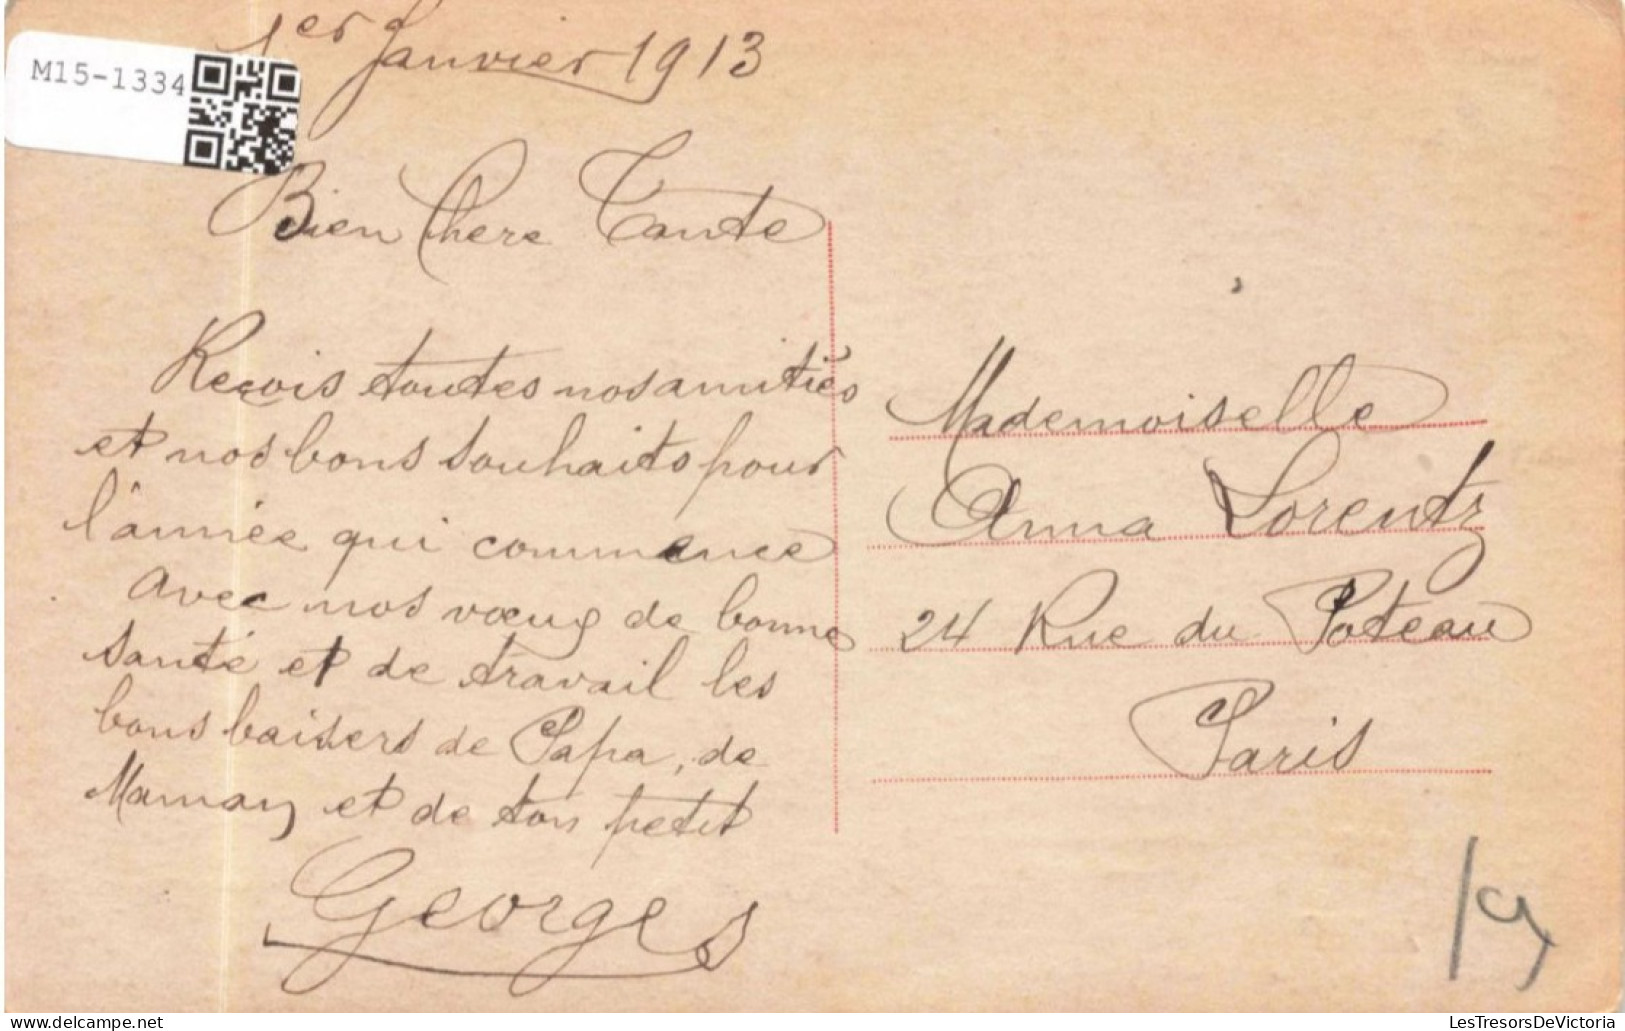 M15-1334
1er Janvier 1913
Bien Chere Tante
Reçois toutes nos amitiés
et nos bons souhaits pour
l'année qui commence
avec nos vœux de bonne
santé et de travail les
bons baisers de Papa, de
Maman et de ton petit
Georges
Mademoiselle
Anna Lorentz
24 Rue du Poteau
Paris
LesTresorsDeVictoria